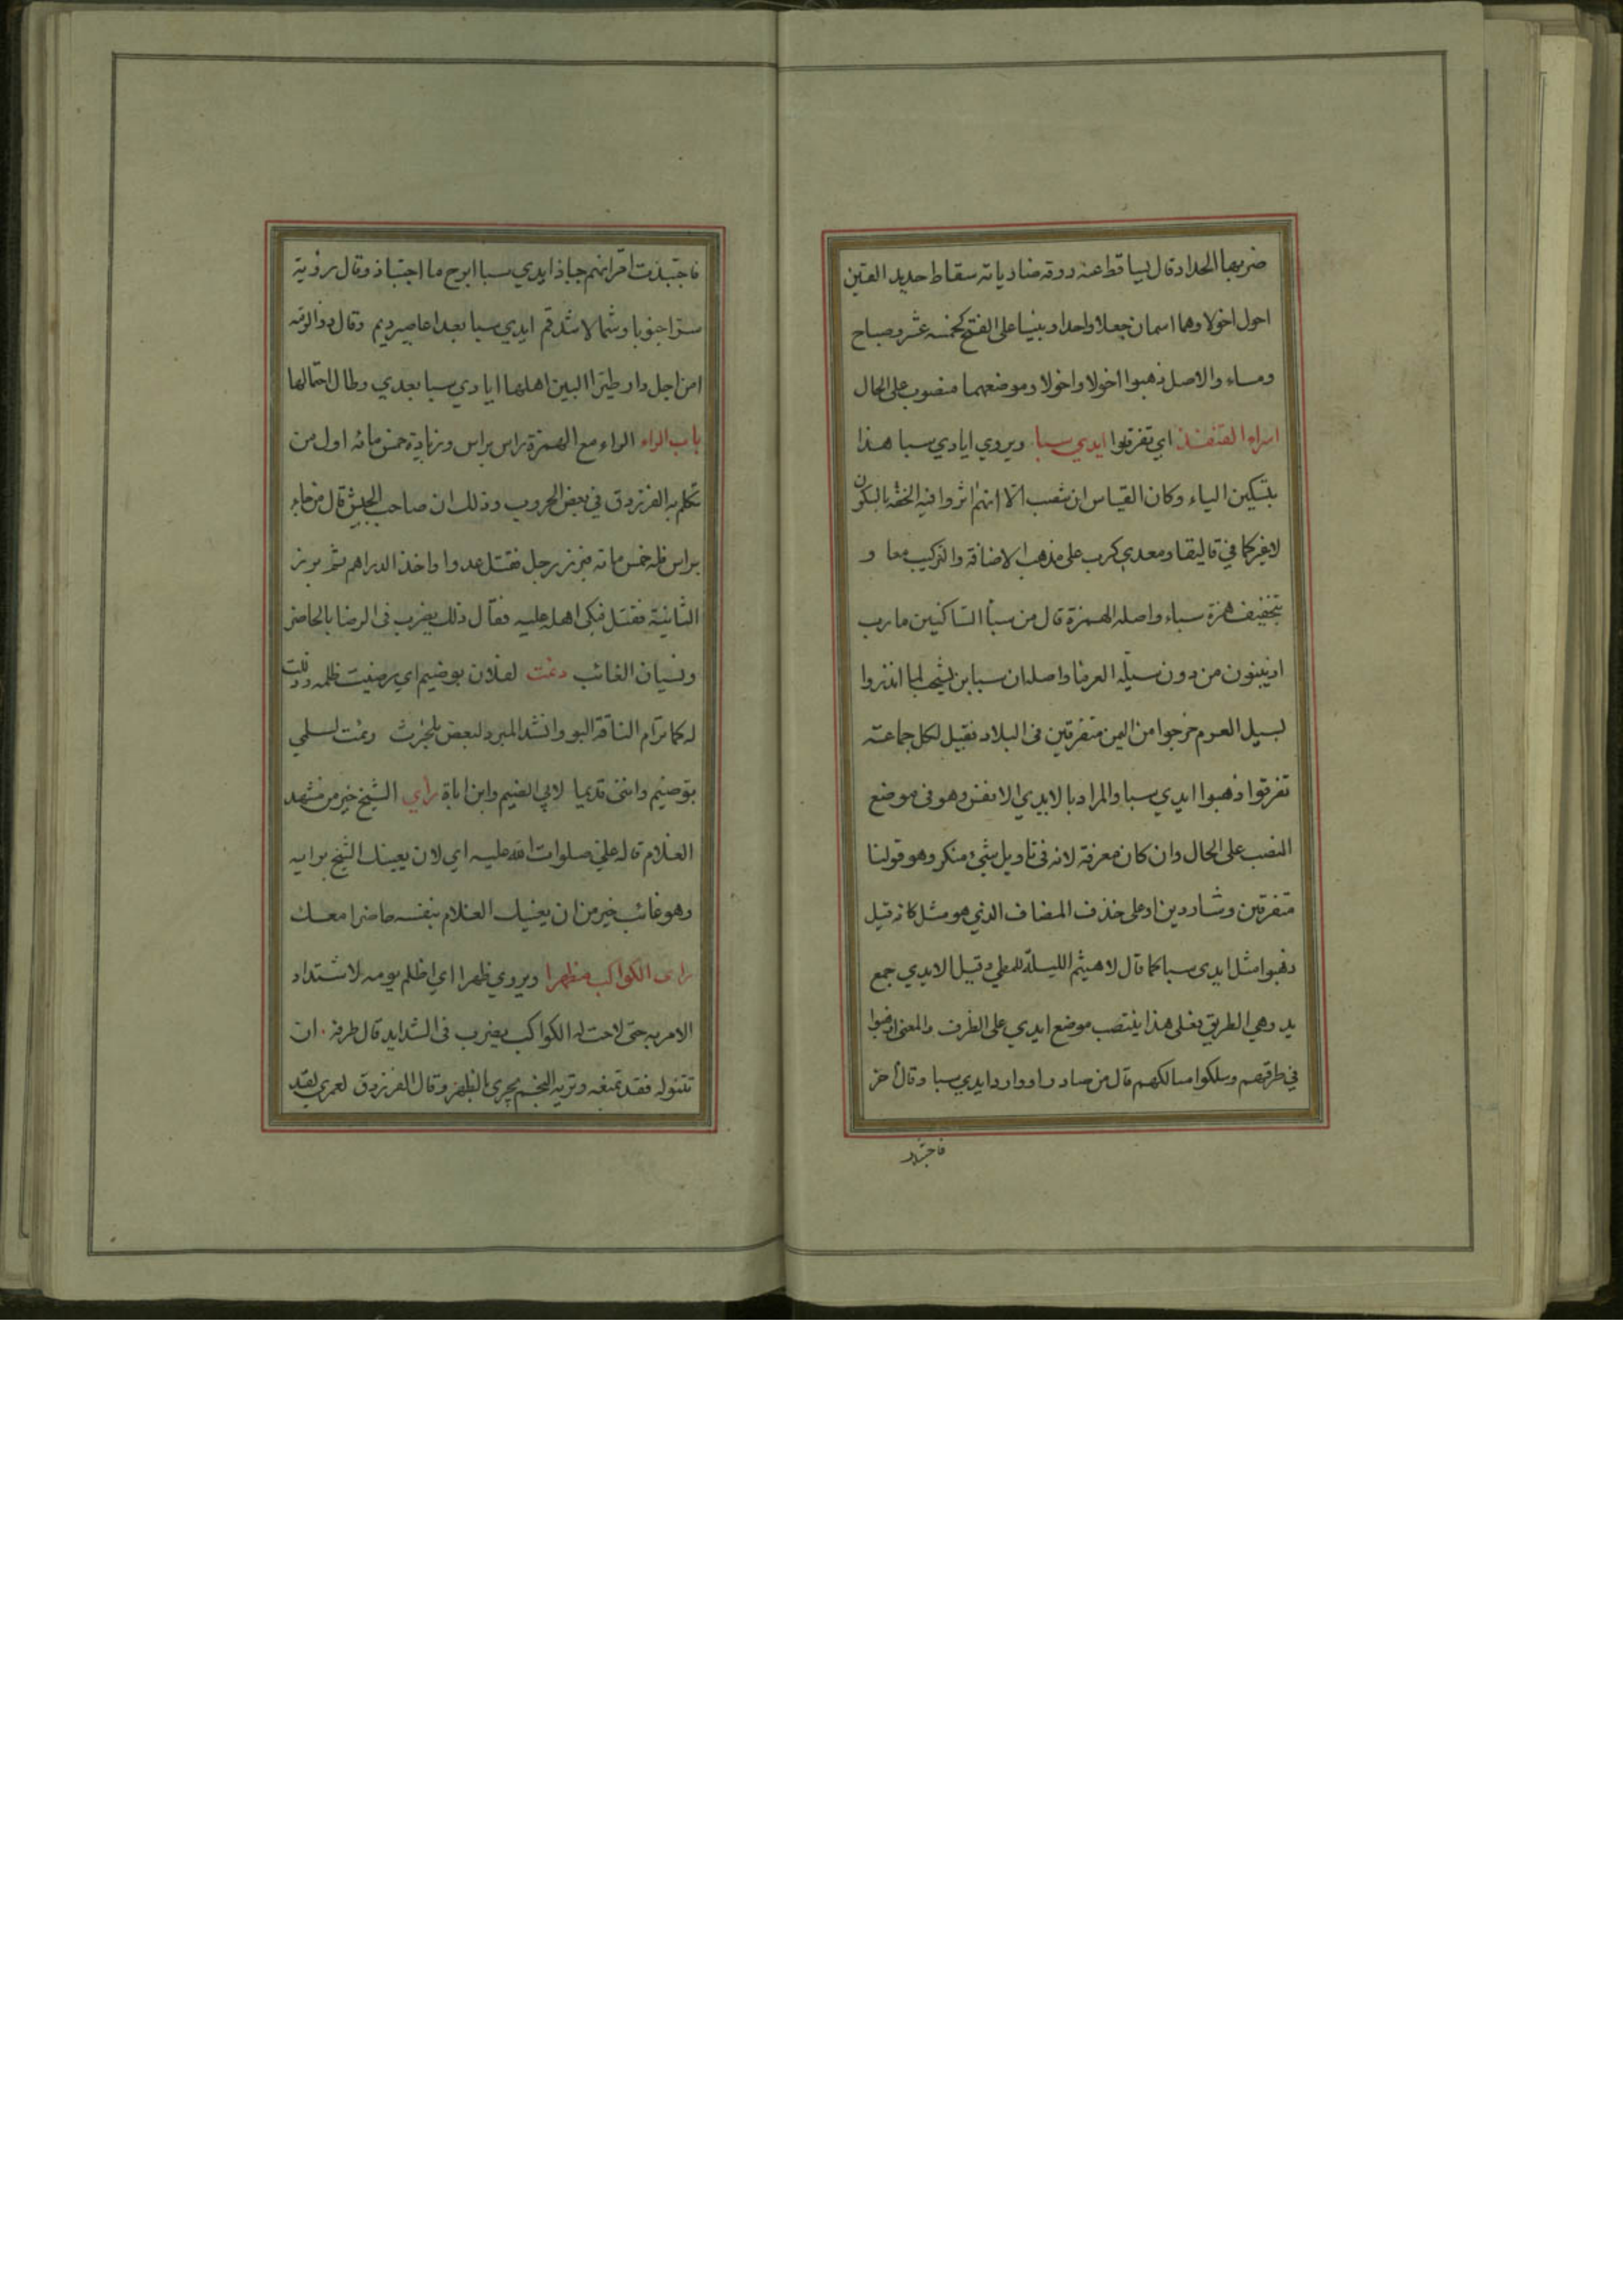 ضربها الحداد قال يساقط عنه روقه ضارياته سقاط حديد القين
اخول اخولا وهما اسمان جعلا واحدا وبنيا على الفتح كخمسه عشر وصباح
ومساء والاصل ذهبوا اخولا واخولا وموضعهما منصوب على الحال
اسراء القنفذ اي تفرقوا ايدي سبا ويروي ايادي سبا هذا
بتسكين الياء وكان القياس ان ينصب الا انهم اثروا فيه الخفة بالسكون
لا غير كما في قاليقلا ومعدي كرب على مذهب الاضافة والتركيب معا و
بتخفيف همزة سباء واصله الهمزة قال من سبأ الساكنين مارب
اذ يبنون من دون سيله العرما واصله ان سبا بن يشجب لما انذروا
لسيل العرم خرجوا من اليمن متفرقين في البلاد فقيل لكل جماعة
تفرقوا ذهبوا ايدي سبا والمراد بالايدي الانفس وهو في موضع
النصب على الحال وان كان معرفة لانه في تاويل شيء منكر وهو قولنا
متفرقين وشاردين او على حذف المضاف الذي هو مثل كانه قيل
ذهبوا مثل ايدي سبا كما قال لا هيثم الليلة للمطي وقيل الايدي جمع
يد وهي الطريق فعلى هذا ينتصب موضع ايدي على الظرف والمعنى ذهبوا
في طرقهم وسلكوا مسالكهم قال من صادر او وارد ايدي سبا وقال اخر
فاجتبذت
فاجتبذت اقرانهم جباذ ايدي سبا ابرح ما اجتباذ وقال رؤبة
جنوبا وشمالا ايدي سبا بعد اعاصير ديم وقال ذو الرمه
امن اجل دار طير البين اهلها ايادي سبا بعدي وطال احتمالها
باب الراء الراء مع الهمزة راس براس وزيادة خمس مائه اول من
تكلم به الفرزدق في بعض الحروب وذلك ان صاحب الجيش قال من جاء
براس فله خمس مائه فبرز رجل فقتل عدوا واخذ الدراهم ثم برز
الثانية فقتل فبكى اهله عليه فقال ذلك يضرب في الرضا بالحاضر
ونسيان الغائب رئمت لفلان بو ضيم اي رضيت ظلمه وذللت
له كما ترام الناقة البو وانشد المبرد لبعض بلحرث رئمت لسلمي
بو ضيم وانني قديما لابي الضيم وابن اباة راي الشيخ خير من مشهد
الغلام قاله علي صلوات الله عليه اي لان يعينك الشيخ برايه
وهو غائب خير من ان يعينك الغلام بنفسه حاضرا معك
راى الكواكب مظهرا ويروي ظهرا اي اظلم يومه لاشتداد
الامر به حتى لاحت له الكواكب يضرب في الشدايد قال طرفه ان
تنوله فقد تمنعه وتريه النجم يجري بالظهر وقال الفرزدق لعمري لقد